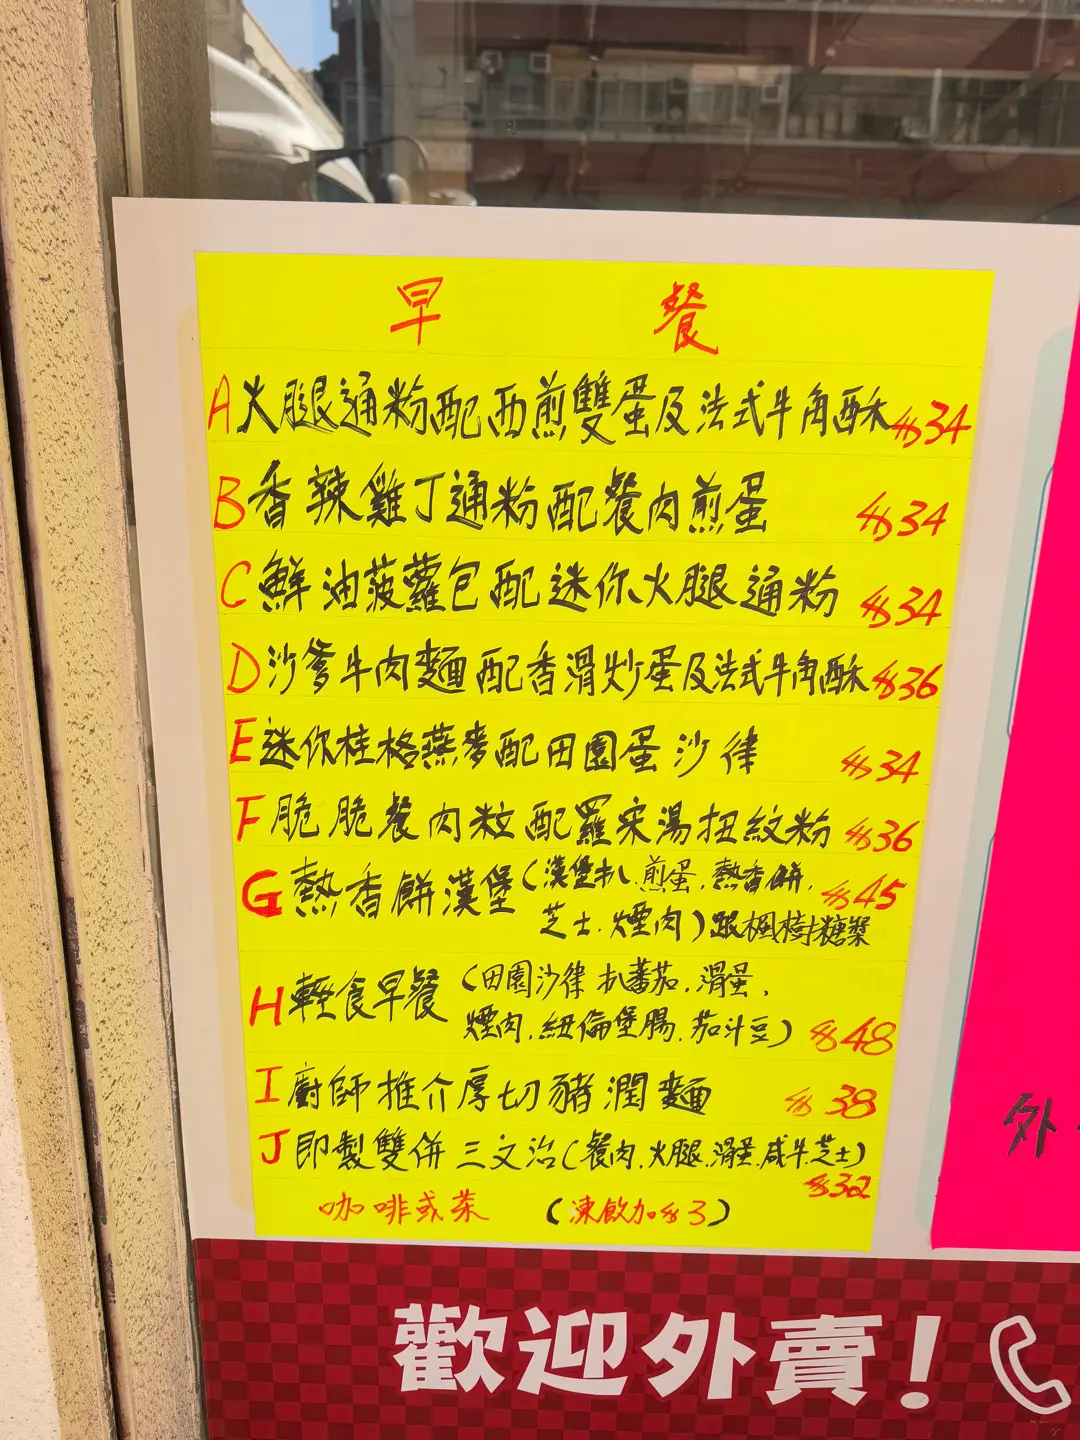 早 餐
A 火腿通粉配西煎雙蛋及法式牛角酥 $34
B 香辣雞丁通粉配餐肉煎蛋 $34
C 鮮油菠蘿包配迷你火腿通粉 $34
D 沙爹牛肉麵配香滑炒蛋及法式牛角酥 $36
E 迷你桂格燕麥配田園蛋沙律 $34
F 脆脆餐肉粒配羅宋湯扭紋粉 $36
G 熱香餅漢堡 (漢堡扒、煎蛋、熱香餅、 $45
芝士、煙肉) 跟楓樹糖漿
H 輕食早餐 (田園沙律 扒蕃茄、滑蛋、
煙肉、紐倫堡腸、茄汁豆) $48
I 廚師推介厚切豬潤麵 $38
J 即製雙併三文治 (餐肉、火腿、滑蛋、咸牛、芝士)
$32
咖啡或茶 (凍飲加$3)
外
歡迎外賣!